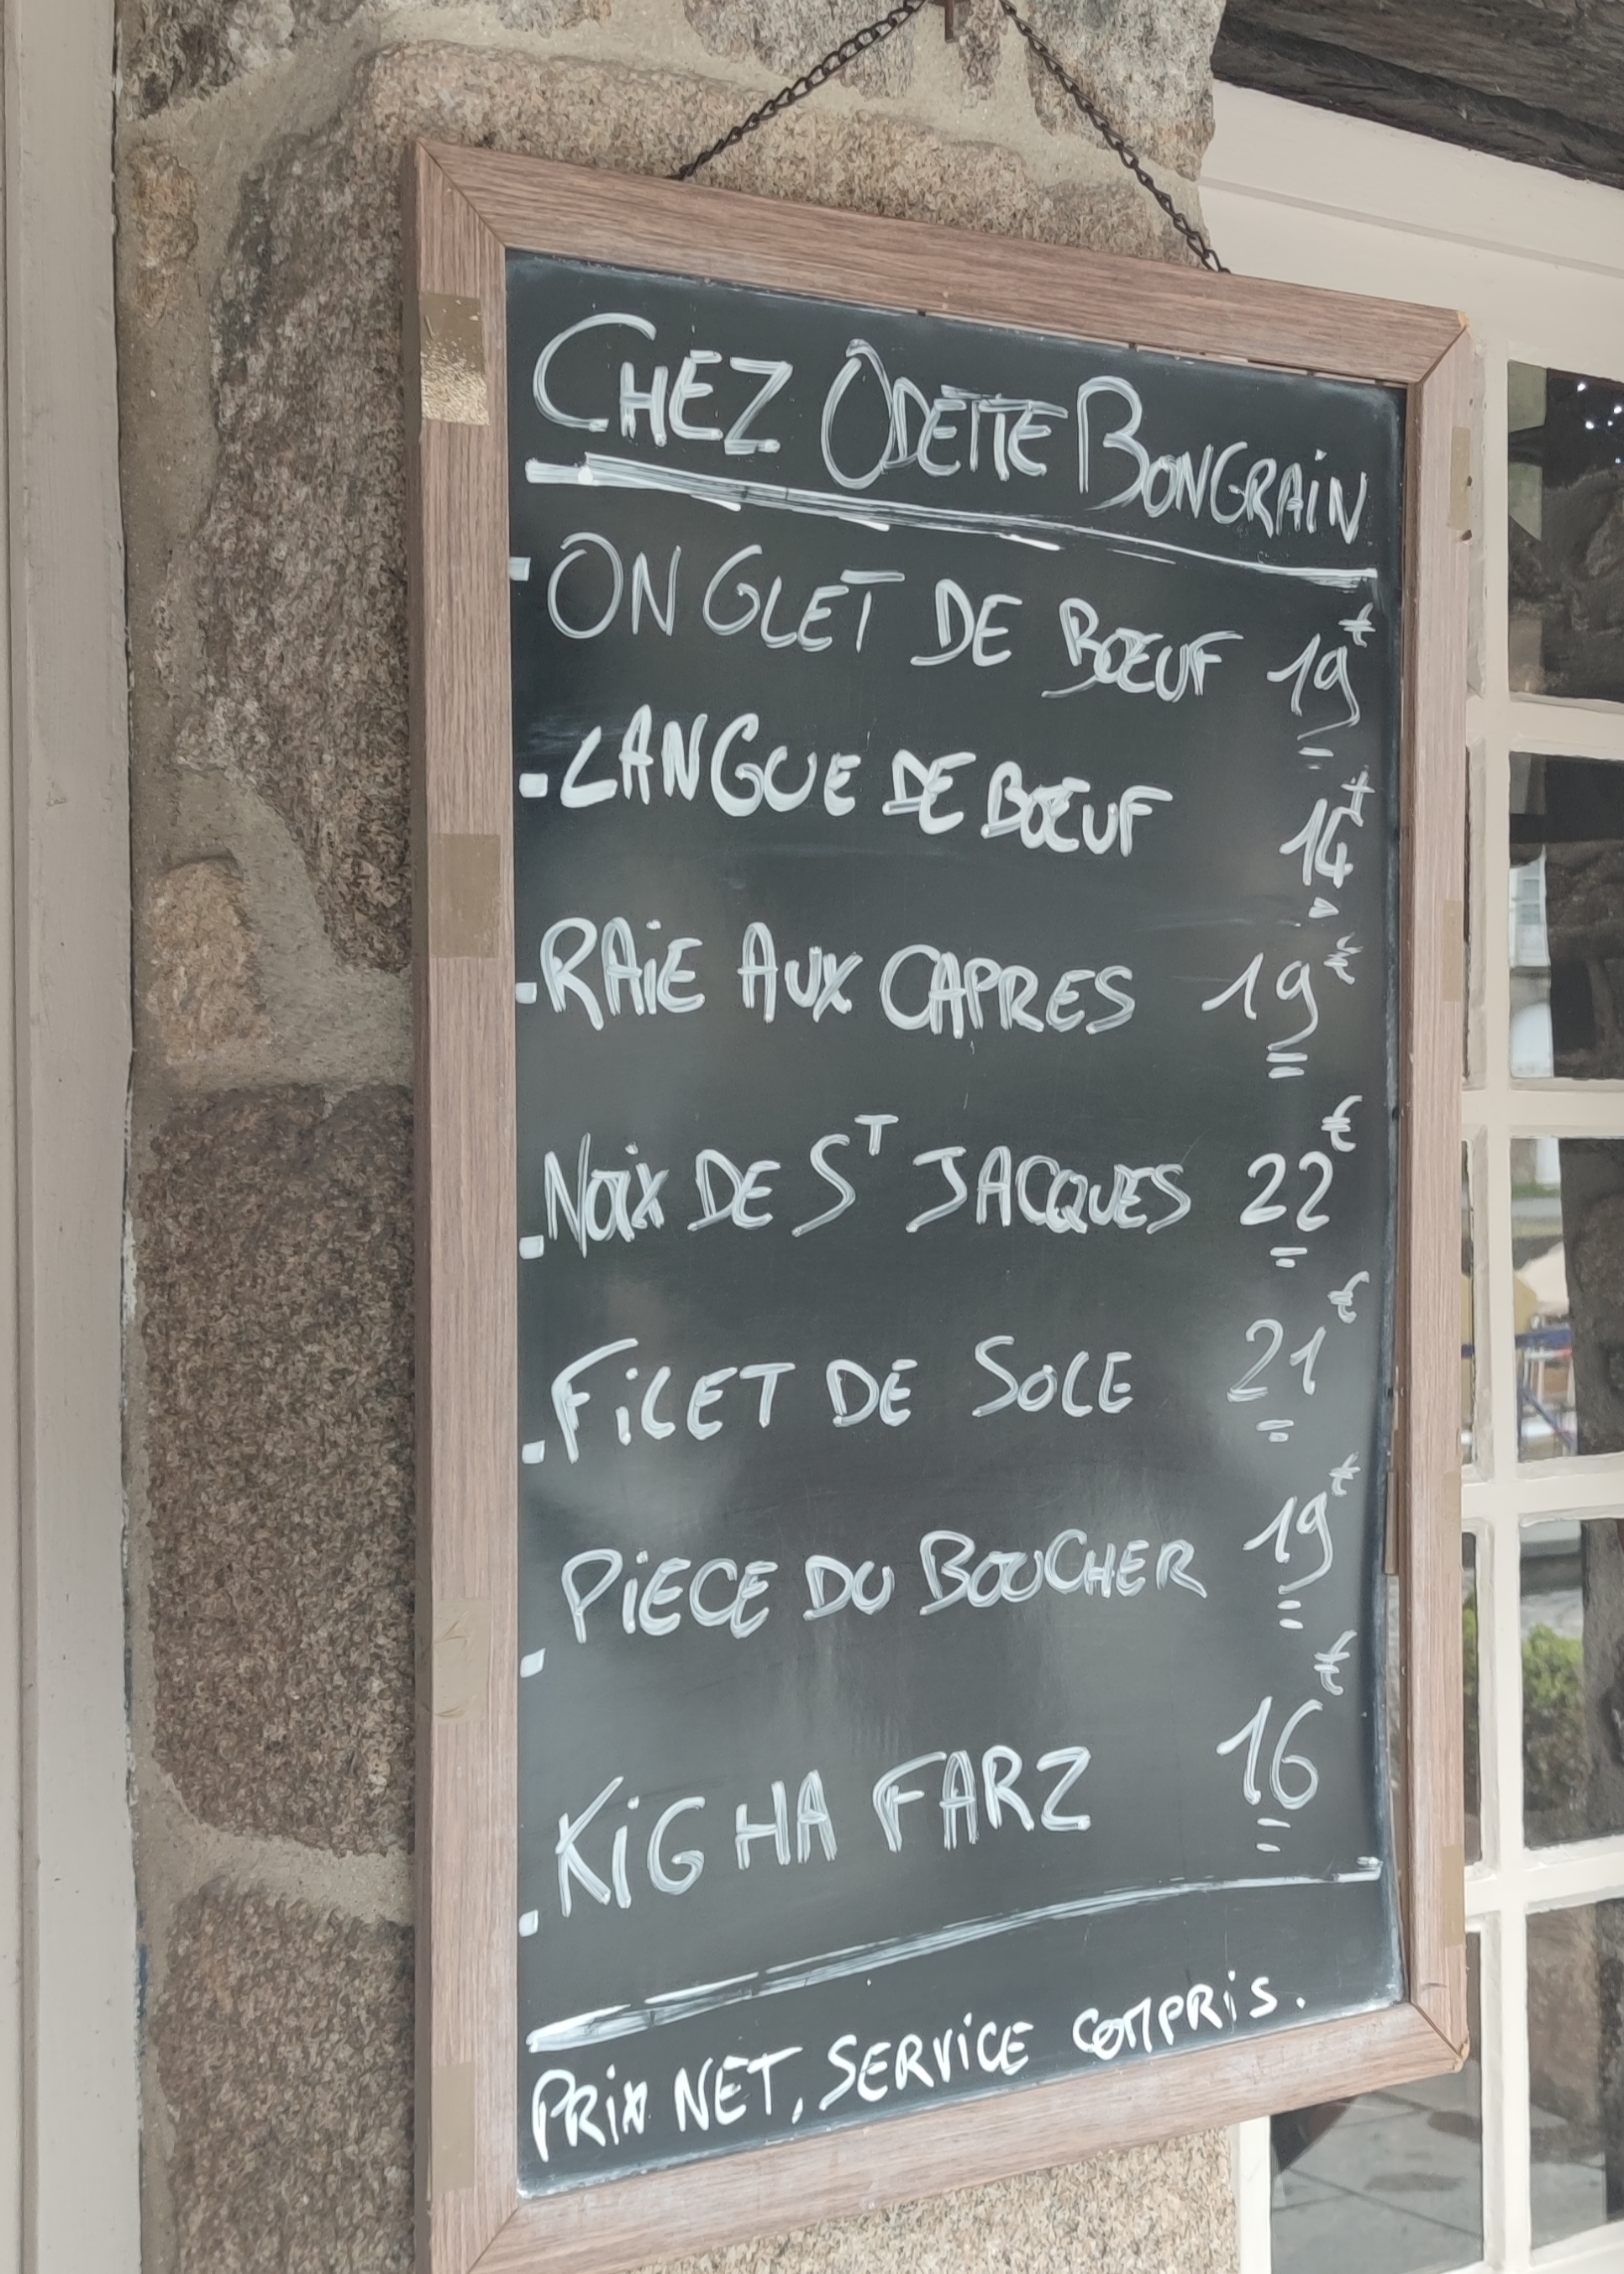 CHEZ ODETTE BONGRAIN
- ONGLET DE BŒUF 19€
- LANGUE DE BŒUF 14€
- RAiE AUX CAPRES 19€
- NOiX DE ST JACQUES 22€
- FiLET DE SOLE 21€
- PiECE DU BOUCHER 19€
- KiG HA FARZ 16€
PRiX NET, SERViCE COMPRiS.